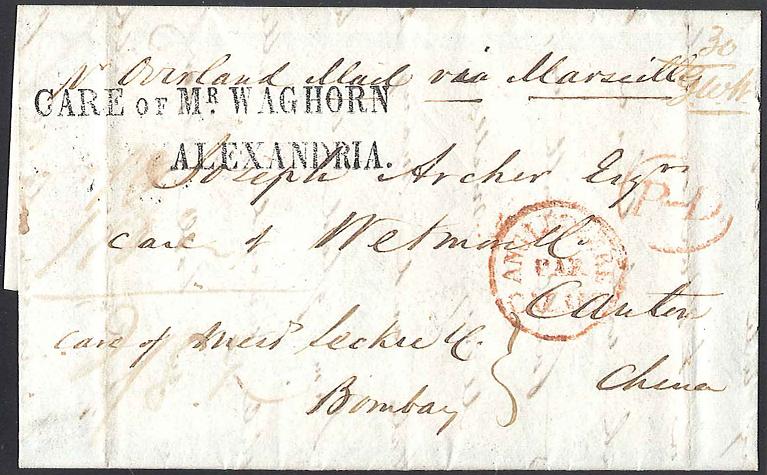 pr Overland Mail via Marseilles
CARE OF MR. WAGHORN
ALEXANDRIA.
Joseph Archer Esqr
care of Wetmore & Co.
Canton
China
care of Messrs Leckie & Co.
Bombay
30
ANGLETERRE
PAR